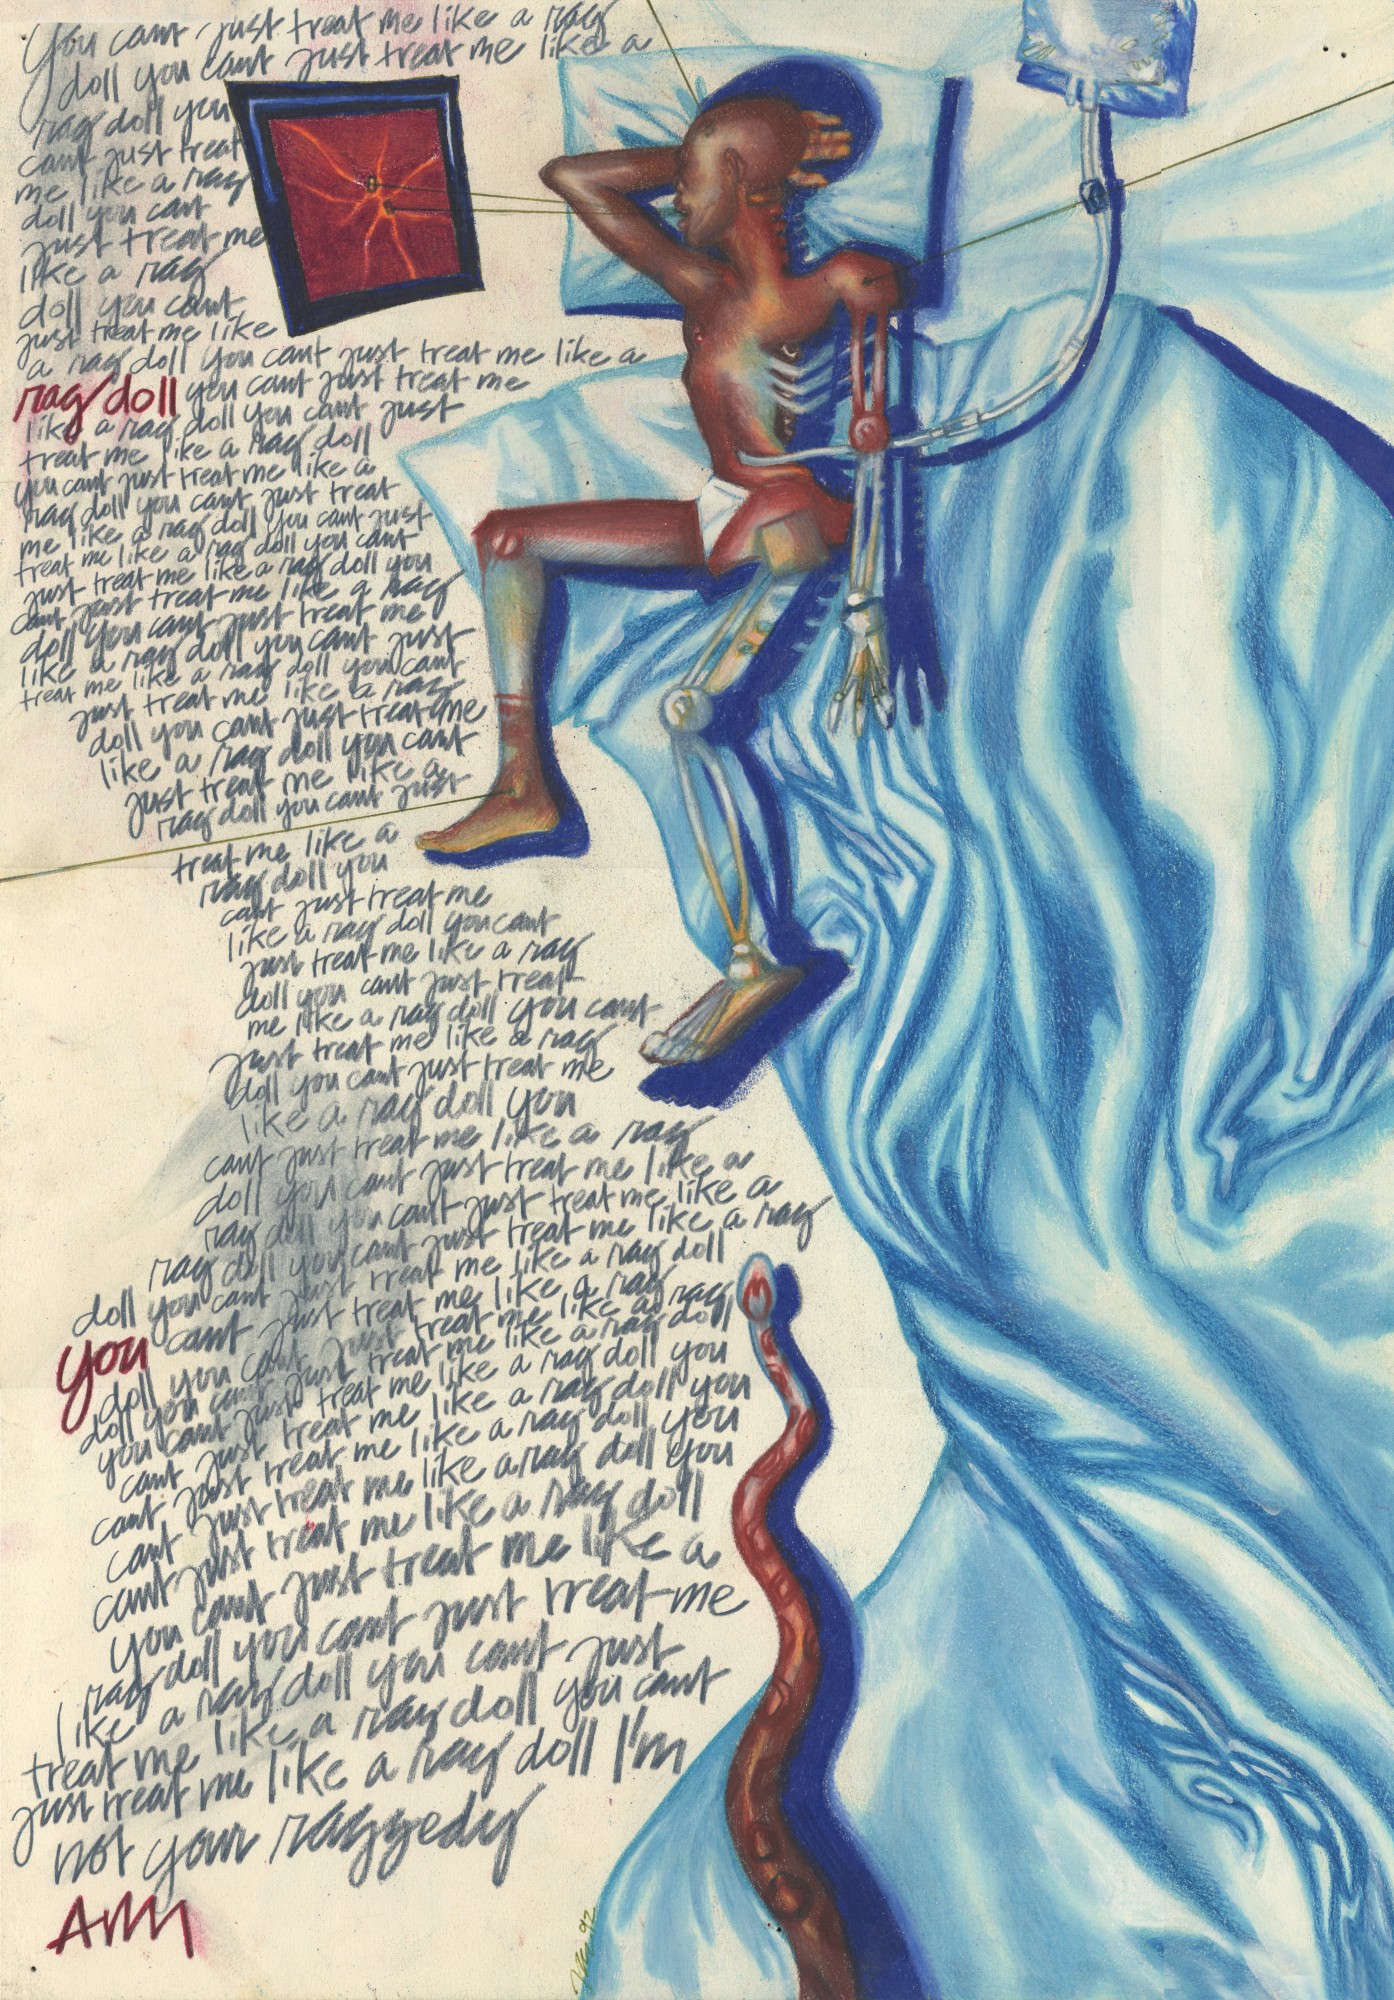 You cant just treat me like a rag
doll you cant just treat me like a
rag doll you
cant just treat
me like a rag
doll you cant
just treat me
like a rag
doll you cant
just treat me like
a rag doll you cant just treat me like a
rag doll you cant just treat me
like a rag doll you cant just
treat me like a rag doll
you cant just treat me like a
rag doll you cant just treat
me like a rag doll you cant just
treat me like a rag doll you cant
just treat me like a rag doll you
cant just treat me like a rag
doll you cant just treat me
like a rag doll you cant just
treat me like a rag doll you cant
just treat me like a rag
doll you cant just treat me
like a rag doll you cant
just treat me like a
rag doll you cant just
treat me like a
rag doll you
cant just treat me
like a rag doll you cant
just treat me like a rag
doll you cant just treat
me like a rag doll you cant
just treat me like a rag
doll you cant just treat me
like a rag doll you
cant just treat me like a rag
doll you cant just treat me like a
rag doll you cant just treat me like a
rag doll you cant just treat me like a rag
doll you cant just treat me like a rag doll
you cant just treat me like a rag
doll you cant just treat me like a rag
doll you cant just treat me like a rag doll
you cant just treat me like a rag doll you
cant just treat me like a rag doll you
cant just treat me like a rag doll you
cant just treat me like a rag doll you
cant just treat me like a rag doll
you cant just treat me like a
rag doll you cant just treat me
like a rag doll you cant just
treat me like a rag doll you cant
just treat me like a rag doll I'm
not your raggedy
Ann
92